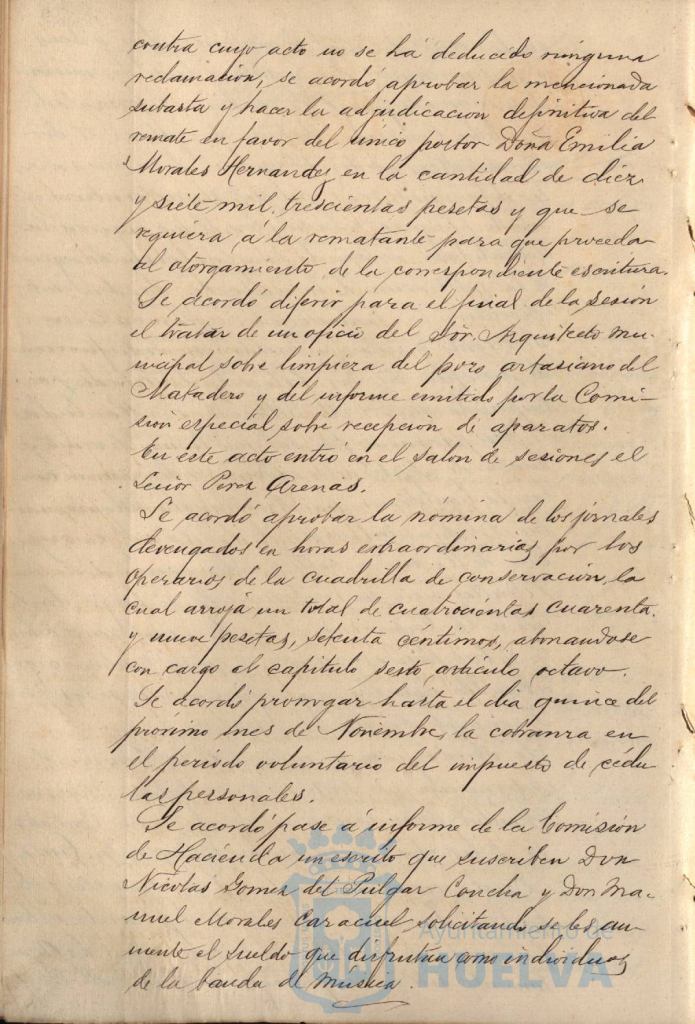 contra cuyo acto no se há deducido ninguna
reclamación, se acordó aprobar la mencionada
subasta y hacer la adjudicacion definitiva del
remate en favor del único postor Doña Emilia
Morales Hernandez en la cantidad de diez
y siete mil trescientas pesetas y que se
requiera á la rematante para que proceda
al otorgamiento de la correspondiente escritura.
Se acordó diferir para el final de la sesión
el tratar de un oficio del Sor. Arquitecto Mu-
nicipal sobre limpieza del pozo artesiano del
Matadero y del informe emitido por la Comi-
sión especial sobre recepción de aparatos.
En este acto entró en el salon de sesiones el
Señor Perez Arenas.
Se acordó aprobar la nómina de los jornales
devengados en horas extraordinarias por los
operarios de la cuadrilla de conservación, la
cual arroja un total de cuatrocientas cuarenta
y nueve pesetas, setenta céntimos, abonandose
con cargo al capitulo sesto artículo octavo.
Se acordó prorrogar hasta el dia quince del
próximo mes de Noviembre, la cobranza en
el período voluntario del impuesto de cédu
las personales.
Se acordó pase á informe de la Comisión
de Hacienda un escrito que suscriben Don
Nicolas Gomez del Pulgar Concha y Don Ma-
nuel Morales Caracuel, solicitando se les au-
mente el sueldo que disfrutan como individuos
de la banda de Musica.
Ayuntamiento de
HUELVA